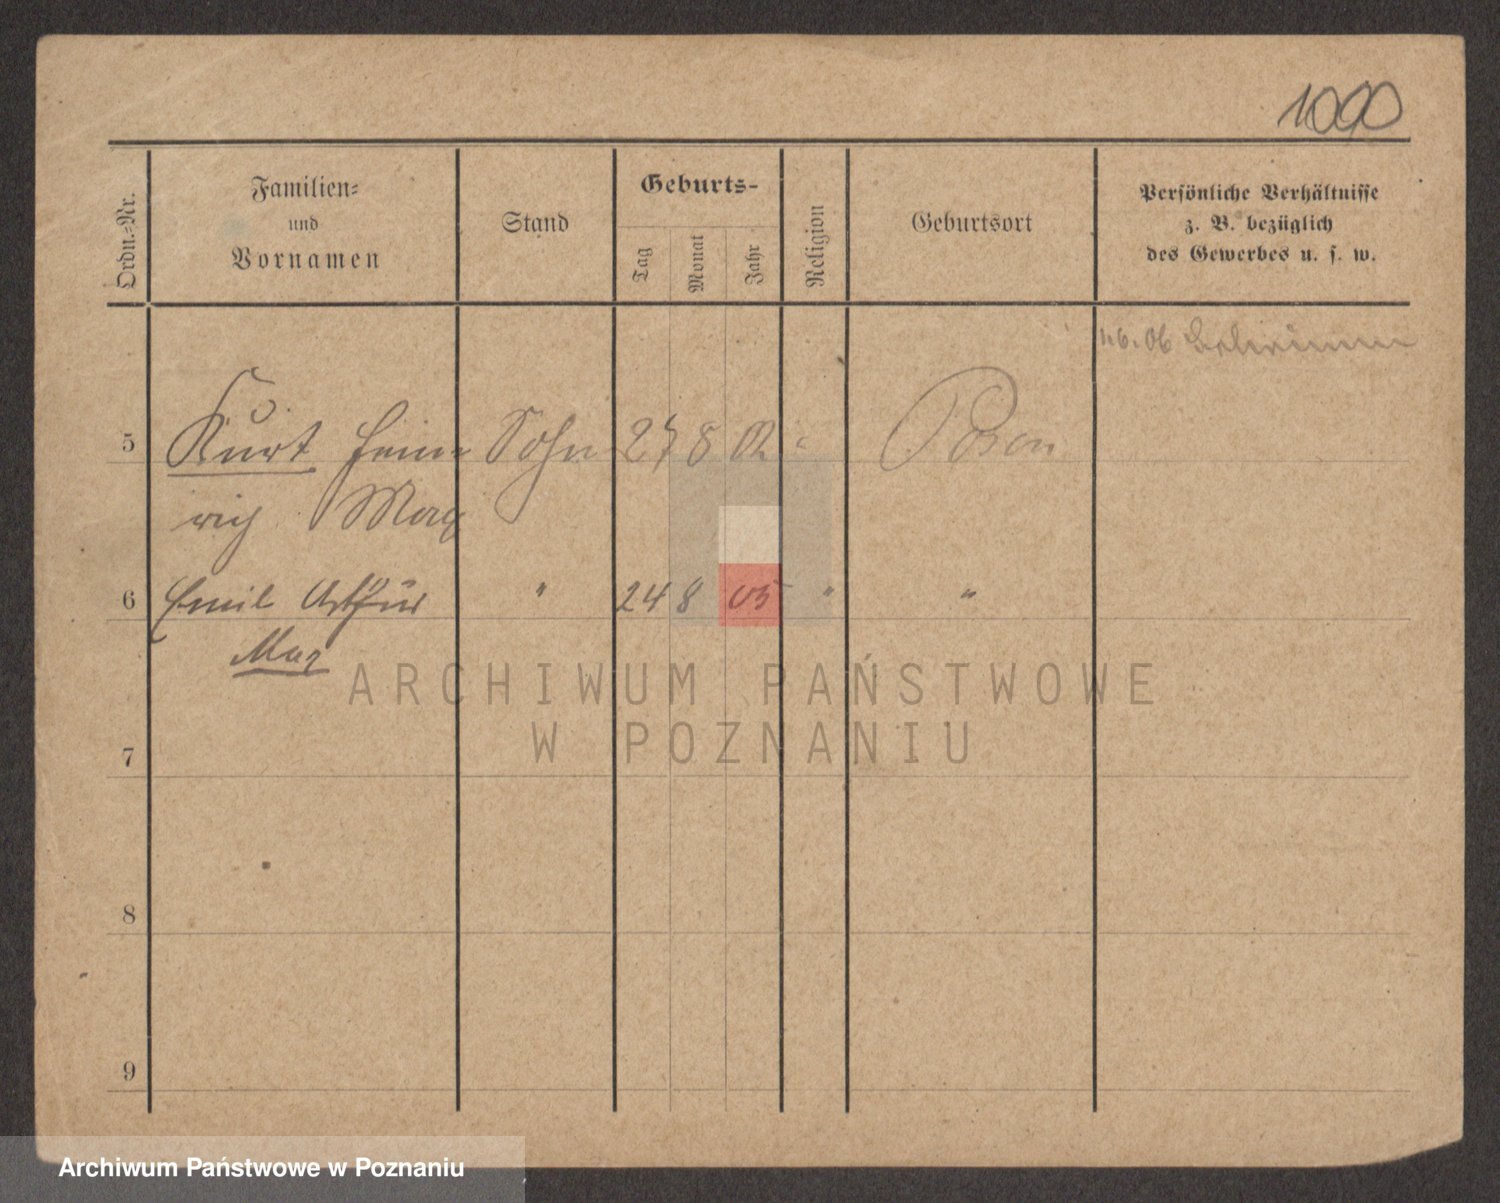 1090
Ordn.-Nr.
Familien-
und
Vornamen
Stand
Geburts-
Tag
Monat
Jahr
Religion
Geburtsort
Persönliche Verhältnisse
z. B. bezüglich
des Gewerbes u. s. w.
5 Kurt Hein- Sohn 27 8 02 " Posen
rich Max
6 Emil Arthur " 24 8 05 " "
Max
7
8
9
ARCHIWUM PAŃSTWOWE
W POZNANIU
Archiwum Państwowe w Poznaniu